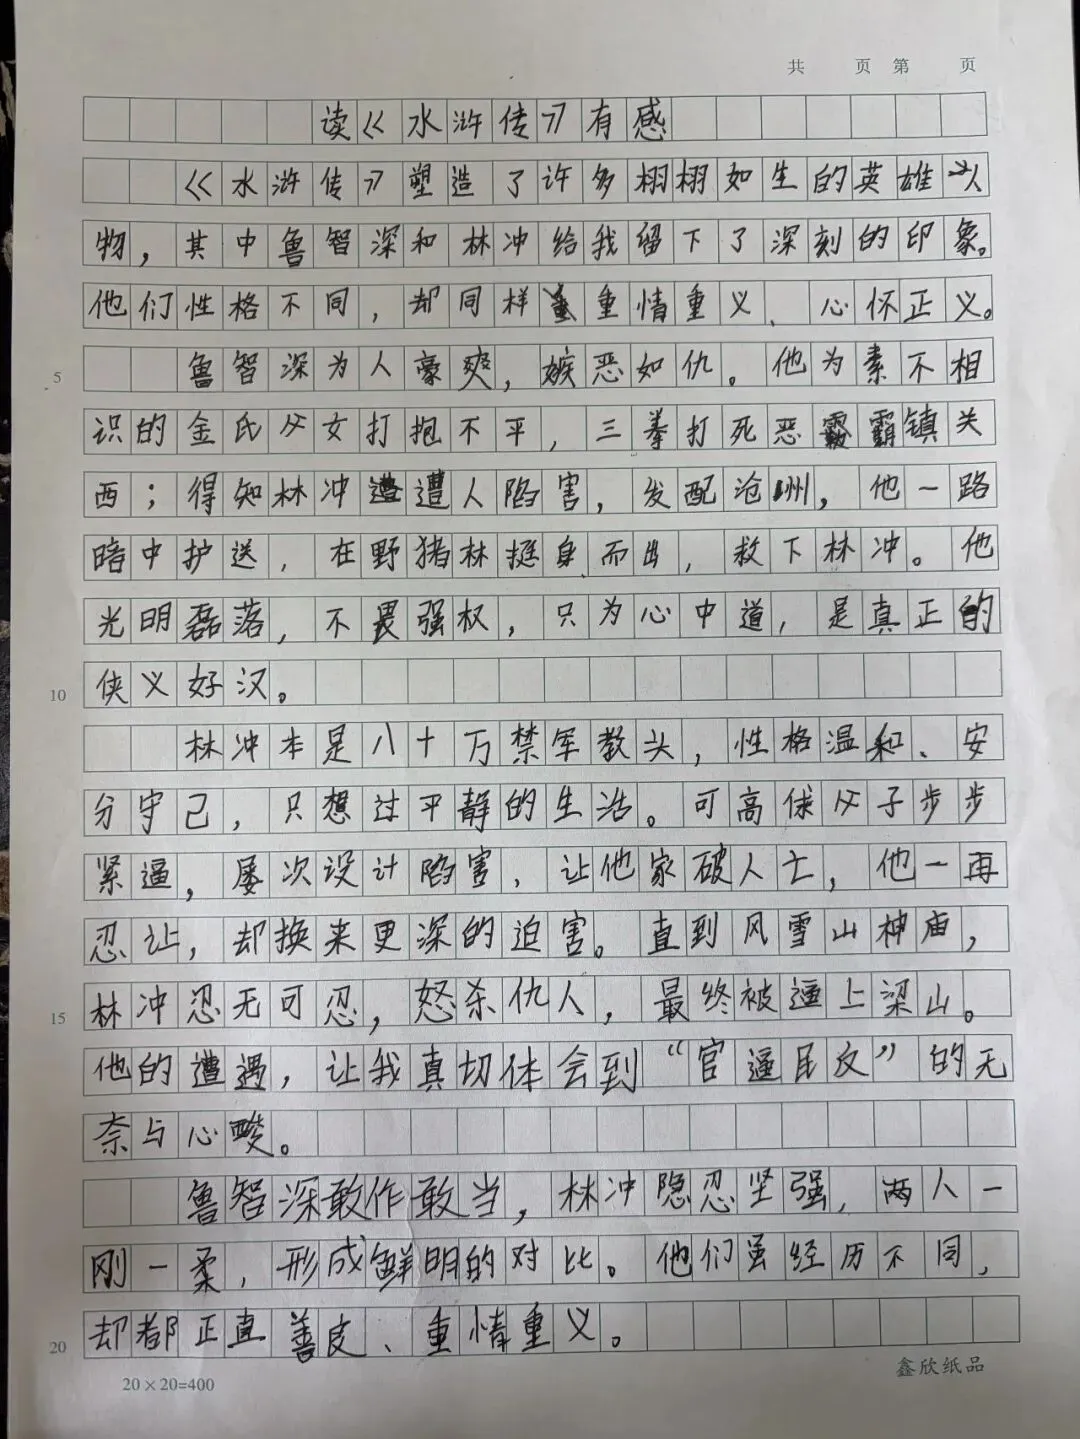 共 页 第 页
读《水浒传》有感
《水浒传》塑造了许多栩栩如生的英雄人
物，其中鲁智深和林冲给我留下了深刻的印象。
他们性格不同，却同样重情重义、心怀正义。
5 鲁智深为人豪爽，嫉恶如仇。他为素不相
识的金氏父女打抱不平，三拳打死恶霸镇关
西；得知林冲遭人陷害，发配沧州，他一路
暗中护送，在野猪林挺身而出，救下林冲。他
光明磊落，不畏强权，只为心中道，是真正的
10 侠义好汉。
林冲本是八十万禁军教头，性格温和、安
分守己，只想过平静的生活。可高俅父子步步
紧逼，屡次设计陷害，让他家破人亡，他一再
忍让，却换来更深的迫害。直到风雪山神庙，
15 林冲忍无可忍，怒杀仇人，最终被逼上梁山。
他的遭遇，让我真切体会到“官逼民反”的无
奈与心酸。
鲁智深敢作敢当，林冲隐忍坚强，两人一
刚一柔，形成鲜明的对比。他们虽经历不同，
20 却都正直善良、重情重义。
20×20=400
鑫欣纸品